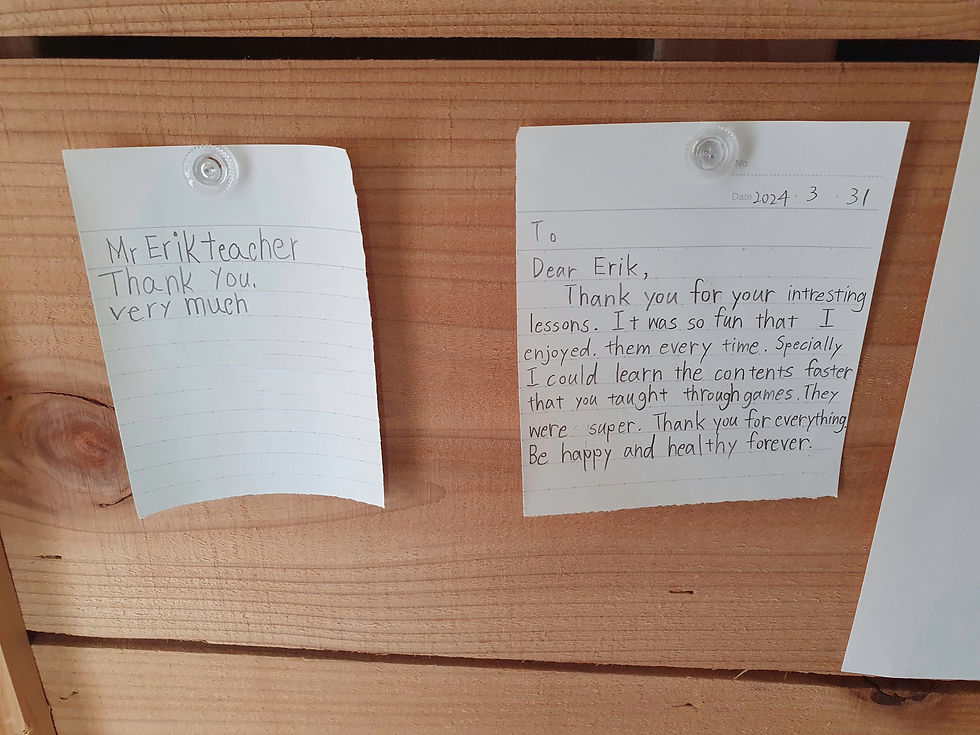 Mr Erik teacher
Thank you.
very much
No.
Date 2024 · 3 · 31
To
Dear Erik,
Thank you for your intresting
lessons. It was so fun that I
enjoyed. them every time. Specially
I could learn the contents faster
that you taught through games. They
were super. Thank you for everything
Be happy and healthy forever.